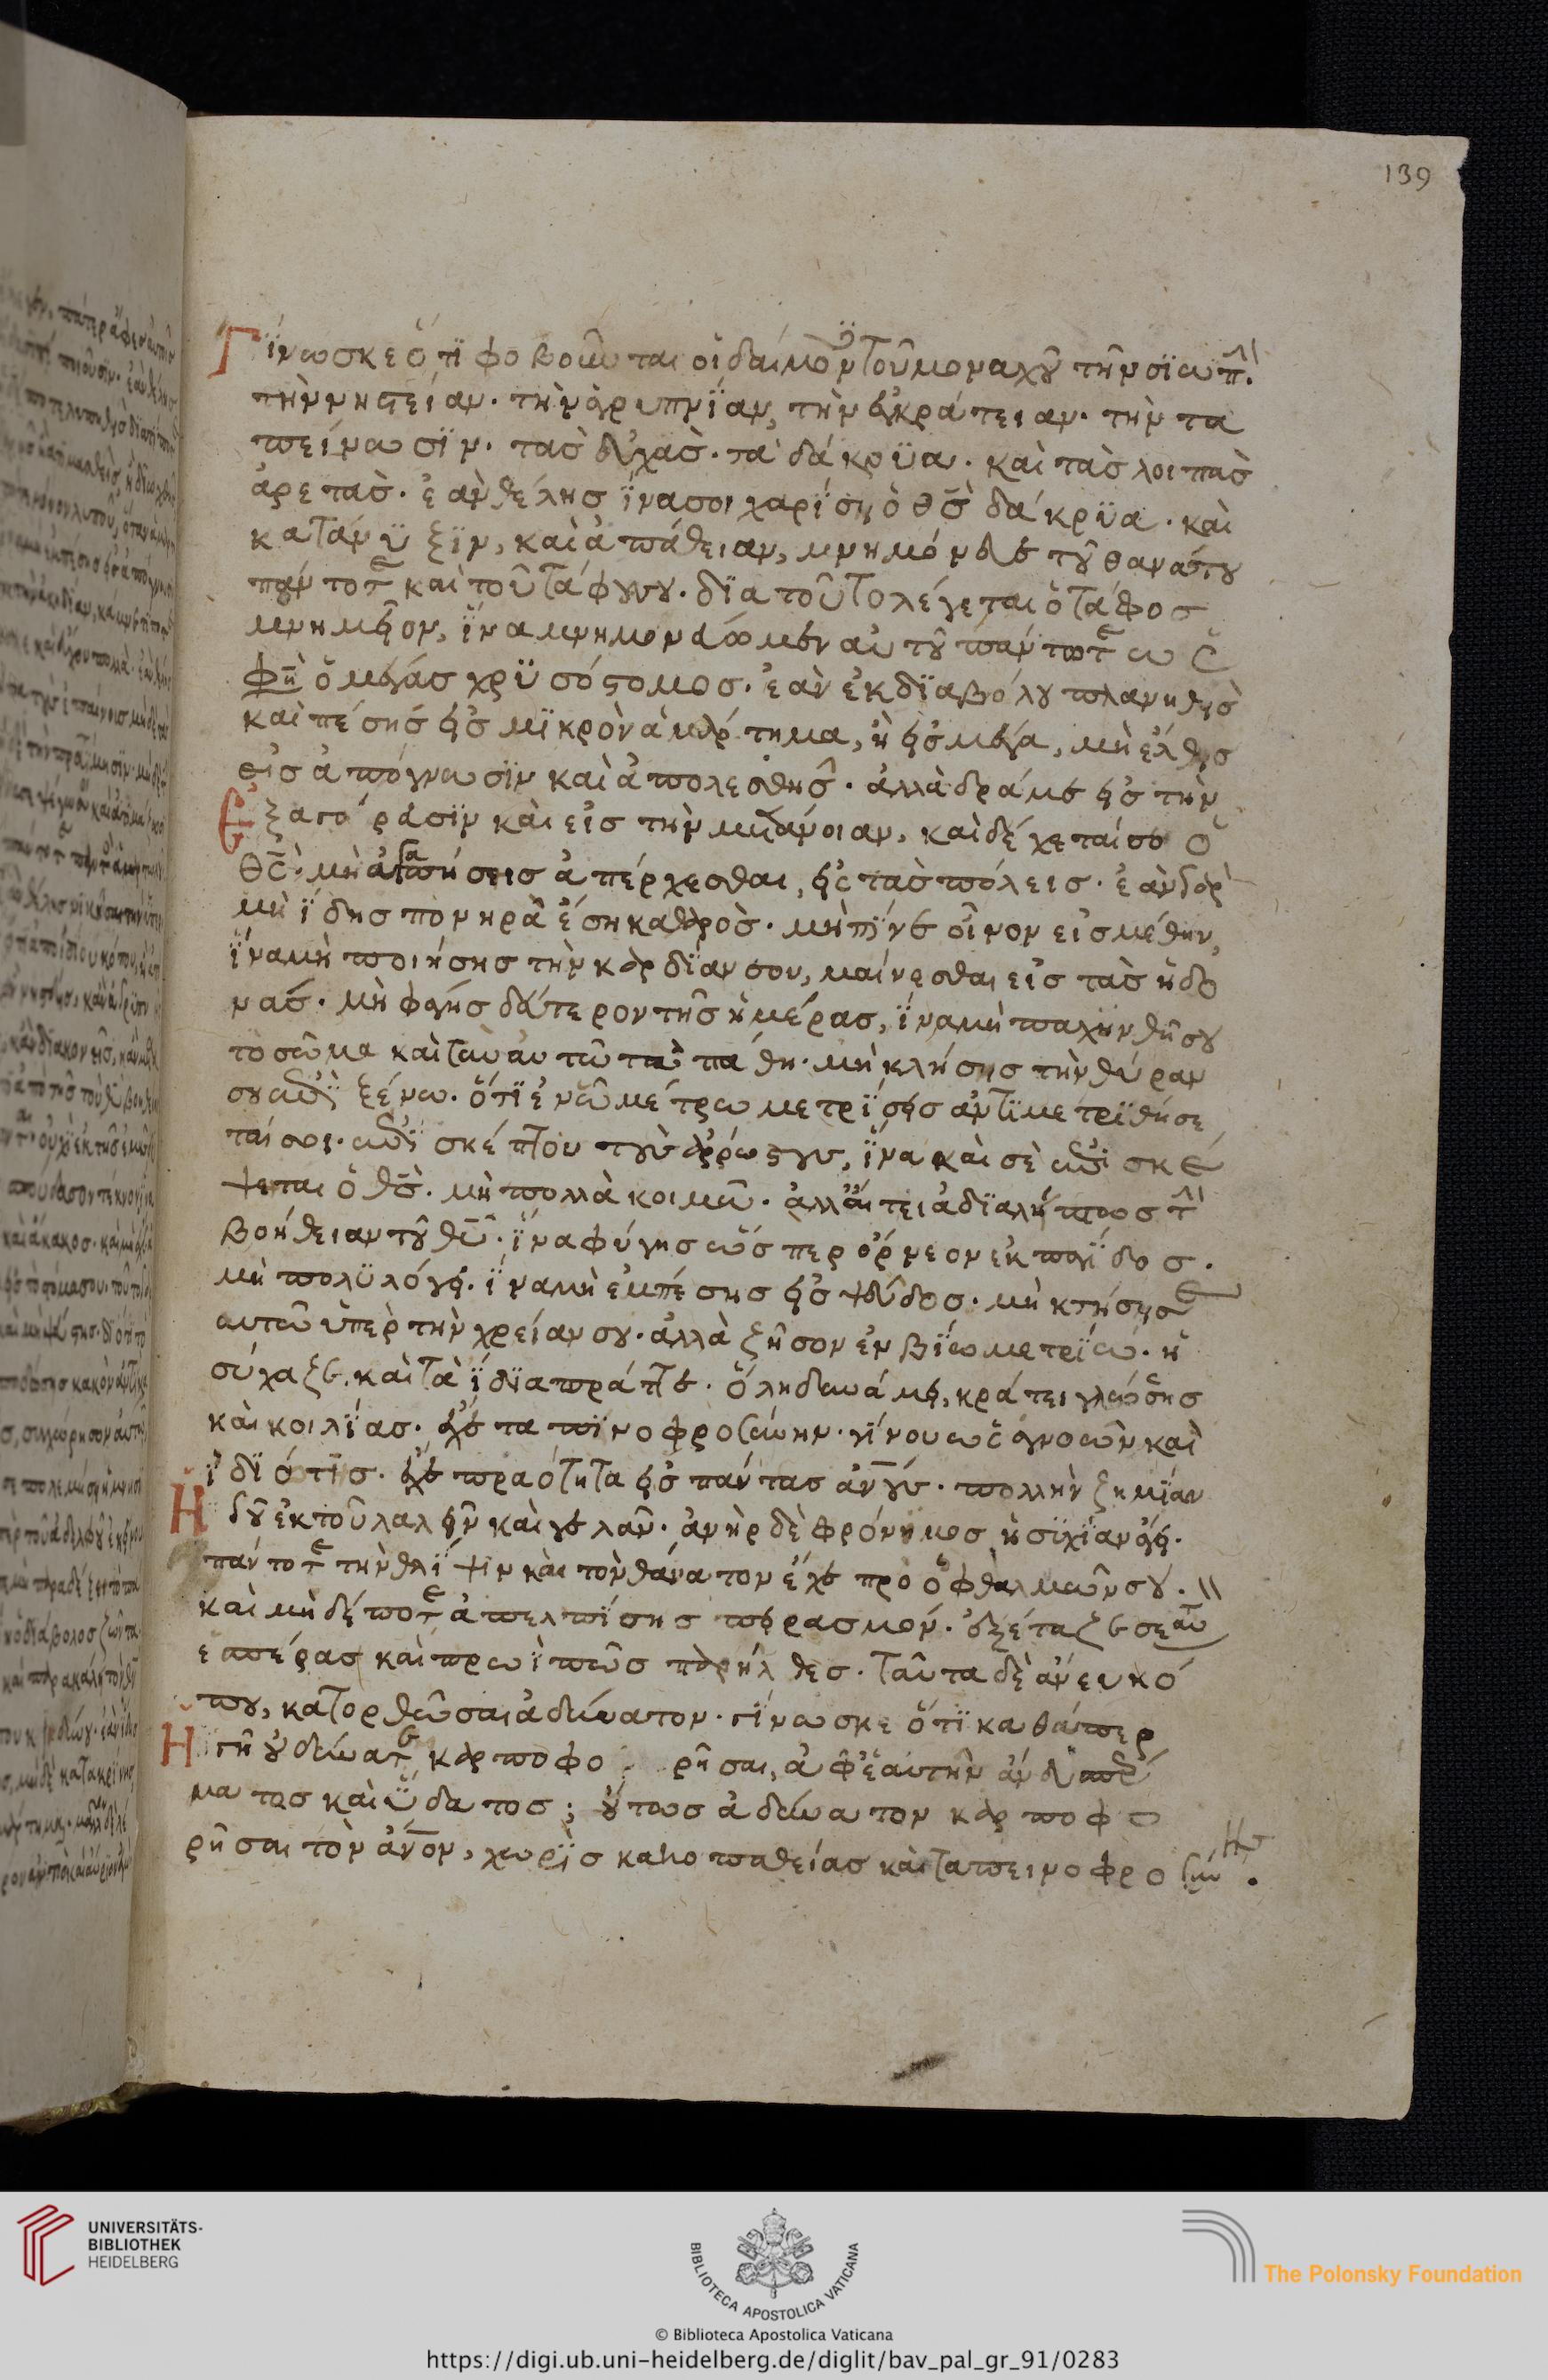 139
Γίνωσκε ὅτι φοβοῦνται οἱ δαίμονες τοῦ μοναχοῦ τὴν σϊωπ.
τὴν νηστείαν. τὴν ἀγρυπνΐαν, τὴν ἐγκράτειαν. τὴν τα
πείνωσϊν. τὰς εὐχὰς. τὰ δάκρϋα. καὶ τὰς λοιπὰς
ἀρετὰς. ἐὰν θέλης ἵνα σοι χαρίση ὁ θς δάκρϋα. καὶ
κατάνϋξϊν, καὶ ἀπάθειαν, μνημόνευε τοῦ θανάτου
πάντοτε καὶ τοῦ τάφου σου. δϊὰ τοῦτο λέγεται ὁ τάφος
μνημεῖον, ἵνα μνημονεύωμεν αὐτοῦ πάντοτε ὡς
φη ὁ μέγας χρϋσόστομος. ἐὰν ἐκ δϊαβόλου πλανηθῆς
καὶ πέσης εἰς μϊκρὸν ἁμάρτημα, ἢ εἰς μέγα, μὴ ἔλθης
εἰς ἀπόγνωσϊν καὶ ἀπολεσθῆς. ἀλλὰ δράμε εἰς τὴν
ἐξαγόρευσϊν καὶ εἰς τὴν μετάνοιαν, καὶ δέχεταί σε ὁ
θς. μὴ ἀγαπήσεις ἀπέρχεσθαι, εἰς τὰς πόλεις. ἐὰν γὰρ
μὴ ἴδης πονηρὰ ἔση καθαρὸς. μὴ πῖνε οἶνον εἰς μέθην,
ἵνα μὴ ποιήσης τὴν καρδΐαν σου, μαίνεσθαι εἰς τὰς ἡδο
νάς. μὴ φάγης δεύτερον τῆς ἡμέρας, ἵνα μὴ παχυνθῆ σου
τὸ σῶμα καὶ σὺν αὐτῶ τὰ πάθη. μὴ κλήσης τὴν θύραν
σου ἐπὶ ξένω. ὅτϊ ἐν ὧ μέτρω μετρΐσεις ἀντϊμετρϊθήσε
ταί σοι. ἐπισκέπτου τοὺς ἀρρώστους, ἵνα καὶ σὲ ἐπισκέ
ψεται ὁ θς. μὴ πολλὰ κοιμῶ. ἀλλ' αἴτει ἀδϊαλήπτως τ
βοήθειαν τοῦ θυ. ἵνα φύγης ὥσπερ ὄρνεον ἐκ παγΐδος.
μὴ πολϋλόγει. ἵνα μὴ ἐμπέσης εἰς ψεῦδος. μὴ κτήσης ε
αυτῶ ὑπὲρ τὴν χρείαν σου. ἀλλὰ ζῆσον ἐν βΐω μετρΐω. ἡ
σύχαζε, καὶ τὰ ἴδϊα πράττε. ὅλη δυνάμει, κράτει γλώσσης
καὶ κοιλΐας. ἔχε ταπϊνοφροσύνην. γίνου ὡς ἀγνοῶν καὶ
ἰδϊότις. ἔχε πραότητα εἰς πάντας ἀνους. πολλὴν ζημΐαν
Ηδοῦ ἐκ τοῦ λαλεῖν καὶ γελᾶν. ἀνὴρ δὲ φρόνημος ἡσϊχΐαν ἄγει.
πάντοτε τὴν θλΐψιν καὶ τὸν θάνατον ἔχε πρὸ ὀφθαλμῶν σου.
καὶ μὴ δέποτε ἀπελπΐσης πειρασμόν. ἐξέταζε σεαυ
ἑσπέρας καὶ πρωῒ πῶς παρήλθες. ταῦτα δὲ ἄνευ κό
που, κατορθῶσαι ἀδύνατον. γίνωσκε ὅτϊ καθάπερ
Ἡ γῆ οὐ δύναται καρποφορῆσαι, ἀφ' ἑαυτὴν ἄνευ σπέρ
ματος καὶ ὕδατος; οὕτως ἀδύνατον καρποφο
ρῆσαι τὸν ἄνον, χωρὶς κακοπαθείας καὶ ταπεινοφροσύνης.
UNIVERSITÄTS-
BIBLIOTHEK
HEIDELBERG
BIBLIOTECA APOSTOLICA VATICANA
The Polonsky Foundation
© Biblioteca Apostolica Vaticana
https://digi.ub.uni-heidelberg.de/diglit/bav_pal_gr_91/0283